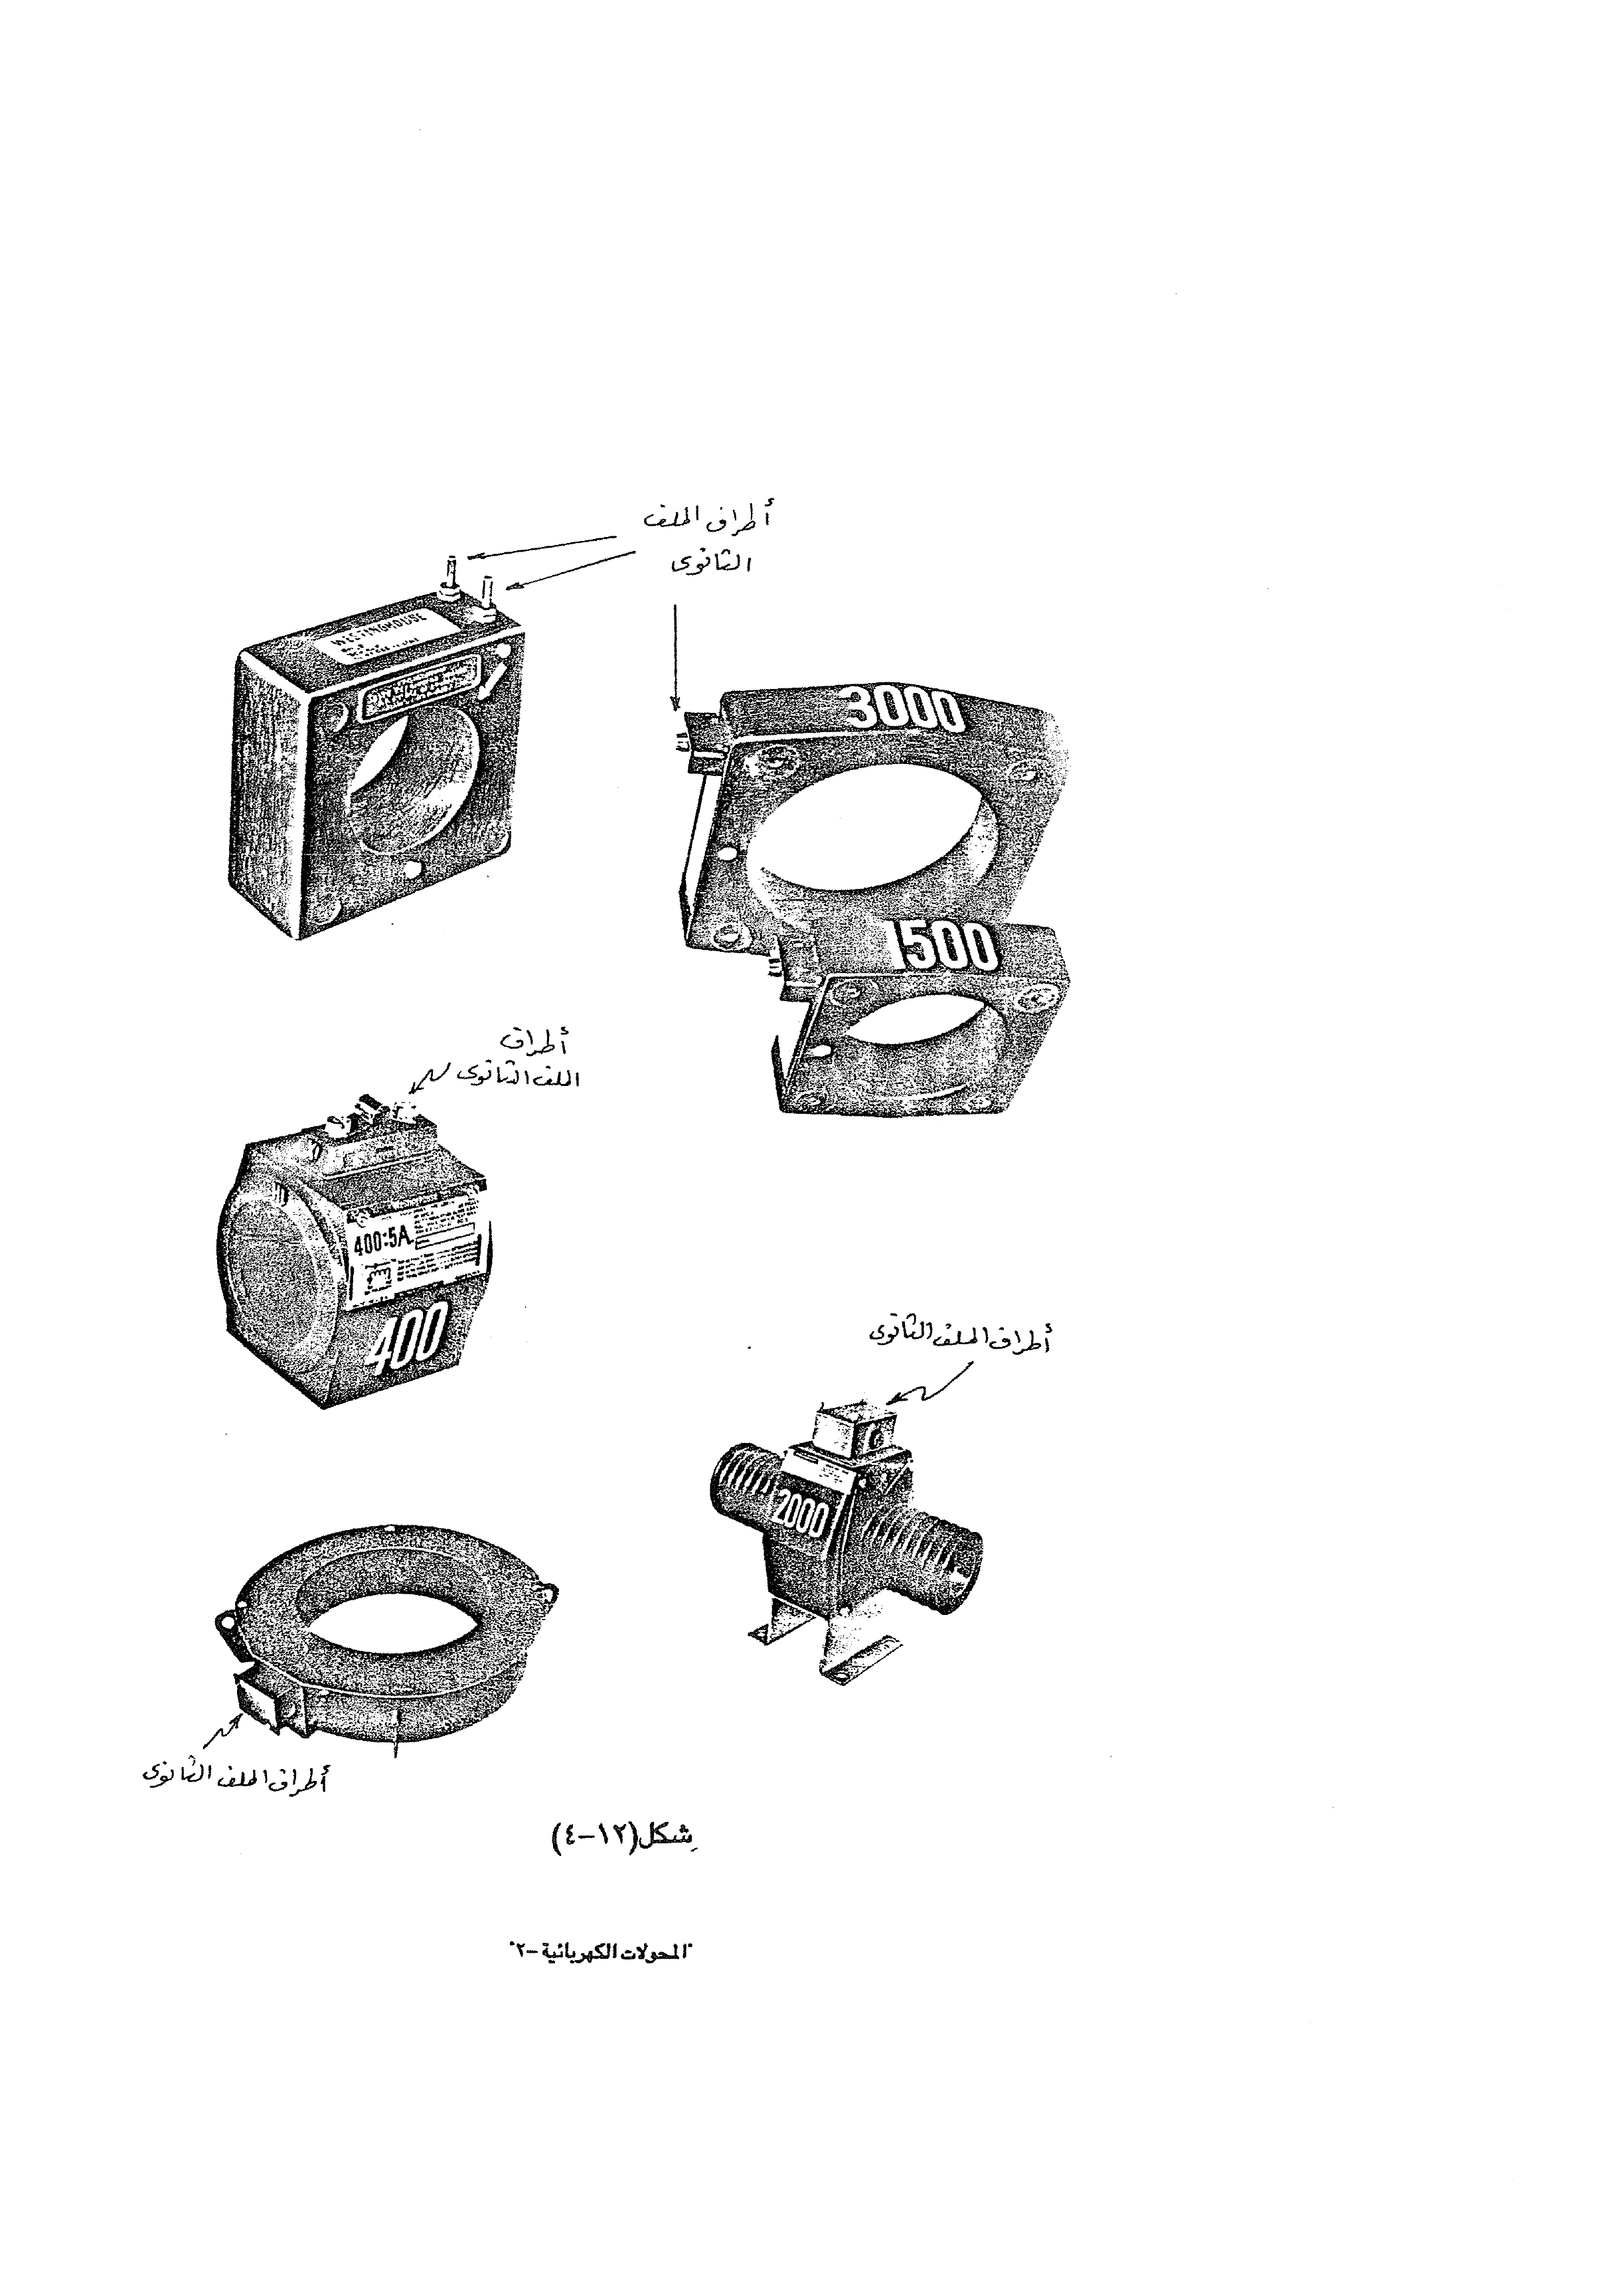 أطراف الملف
الثانوى
WESTINGHOUSE
3000
1500
أطراف
الملف الثانوى
400:5A
400
أطراف الملف الثانوى
2000
أطراف الملف الثانوى
شكل(١٢-٤)
"المحولات الكهربائية-٢"